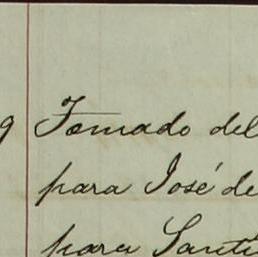 9 Tomado del
para José de
para Santi